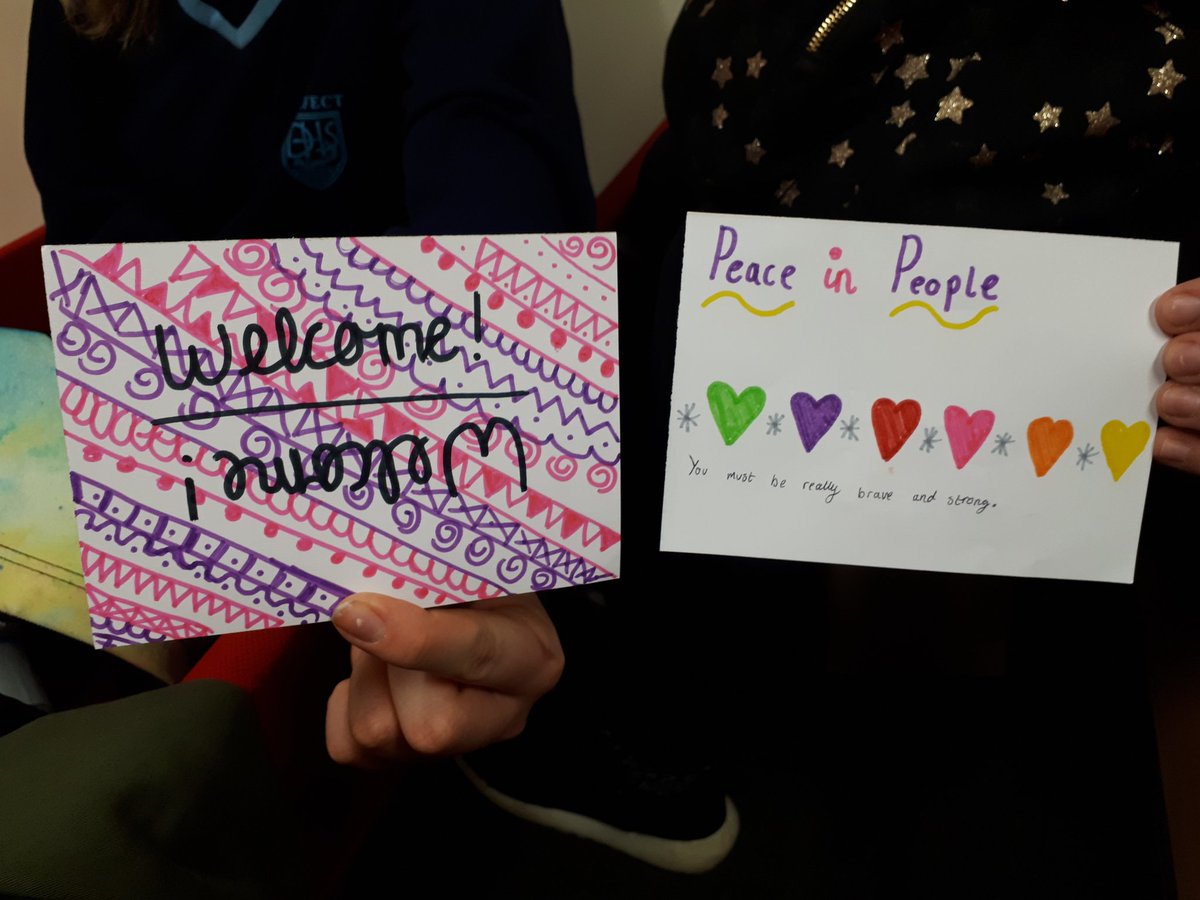 Welcome!
Welcome!
Peace in People
You must be really brave and strong.